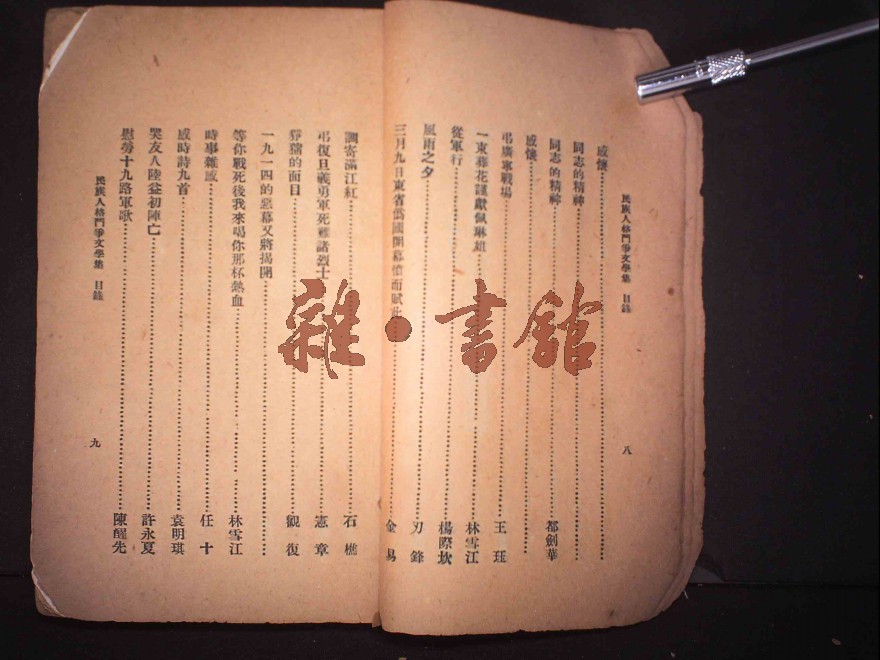 民族人格鬥爭文學集 目錄
八
感懷
同志的精神
同志的精神 都劍華
感懷
弔廣寧戰場 王珏
一束葬花謹獻佩琳姐 林雪江
從軍行 楊際坎
風雨之夕 刃鋒
三月九日東省僞國開幕憤而賦此 金易
調寄滿江紅 石樵
弔復旦義勇軍死難諸烈士 憲章
的面目 觀復
一九一四的惡幕又將揭開
等你戰死後我來喝你那杯熱血 林雪江
時事雜感 任十
感時詩九首 袁明琪
哭友人陸益初陣亡 許永夏
慰勞十九路軍歌 陳醒先
民族人格鬥爭文學集 目錄
九
雜·書館